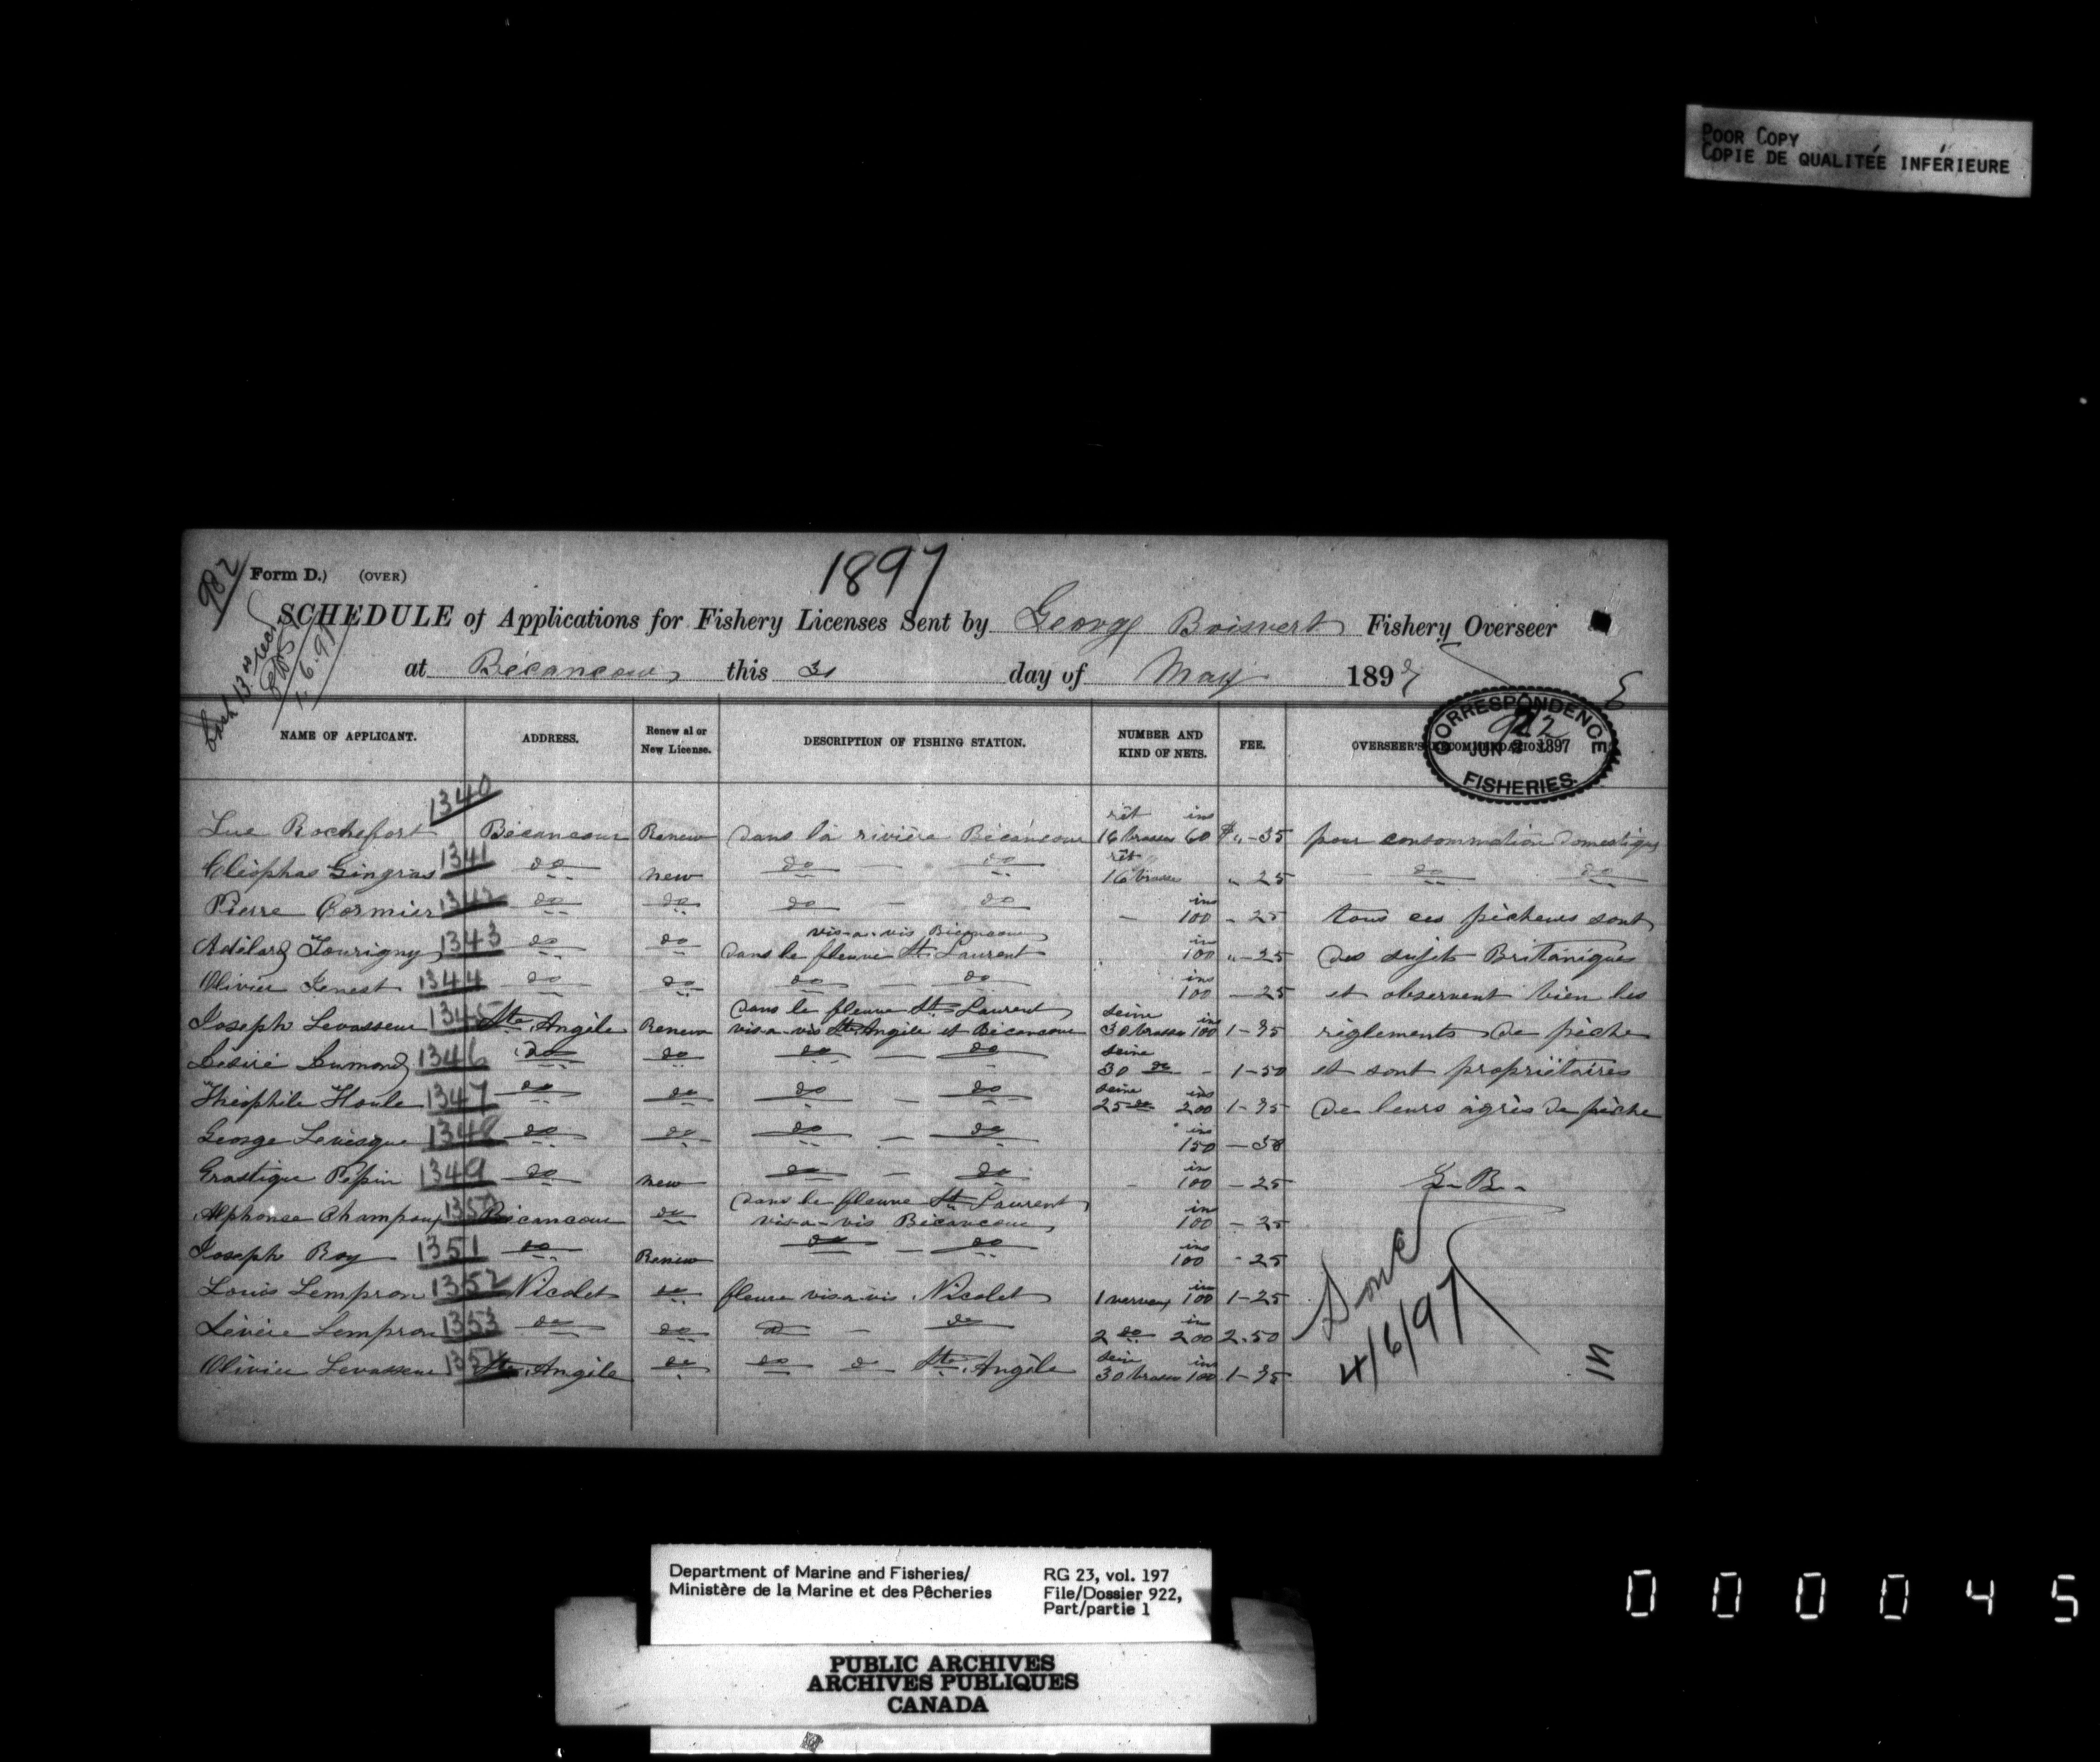 POOR COPY
COPIE DE QUALITÉE INFÉRIEURE
1897
982
Form D.) (OVER)
SCHEDULE of Applications for Fishery Licenses Sent by George Boisvert Fishery Overseer
at Bécancour this 31 day of May 1897
1.6.97
NAME OF APPLICANT. ADDRESS. Renewal or New License. DESCRIPTION OF FISHING STATION. NUMBER AND KIND OF NETS. FEE. OVERSEER'S RECOMMENDATION.
CORRESPONDENCE
922
JUN 2 1897
FISHERIES.
Luc Rochefort 1340 Bécancour Renew dans la rivière Bécancour rêt 16 brasses ins 60 $ " - 35 pour consommation domestique
Cléophas Gingras 1341 do new do - do rêt 16 brasse " 25 do do
Pierre Cormier 1342 do do do - do - ins 100 - 25 tous ces pêcheurs sont
Adélard Tourigny 1343 do do vis-a-vis Bécancour dans le fleuve St Laurent in 100 " - 25 des sujets Britaniques
Olivier Genest 1344 do do do - do ins 100 - 25 et observent bien les
Joseph Levasseur 1345 Ste Angèle Renew dans le fleuve St Laurent vis-a-vis Ste Angèle et Bécancour seine 30 brasses in 100 1-75 règlements de pêche
Désiré Dumond 1346 do do do - do seine 30 do - 1-50 et sont propriétaires
Théophile Houle 1347 do do do - do seine 25 do ins 200 1-75 de leurs agrès de pêche
George Levesque 1348 do do do - do in 150 - 38
Erastique Pépin 1349 do new do - do - in 100 - 25 G. B.
Alphonse Champoux 1350 Bécancour do dans le fleuve St Laurent vis-a-vis Bécancour in 100 - 25
Joseph Roy 1351 do Renew do - do ins 100 - 25
Louis Lempron 1352 Nicolet do fleuve vis-a-vis Nicolet 1 verveux in 100 1-25
Lempron 1353 do do do - do 2 do in 200 2.50
Olivier Levasseur 1354 Ste Angèle do do do Ste Angèle seine 30 brasses ins 100 1-75
Done
4/6/97
Department of Marine and Fisheries/
Ministère de la Marine et des Pêcheries
RG 23, vol. 197
File/Dossier 922,
Part/partie 1
PUBLIC ARCHIVES
ARCHIVES PUBLIQUES
CANADA
000045